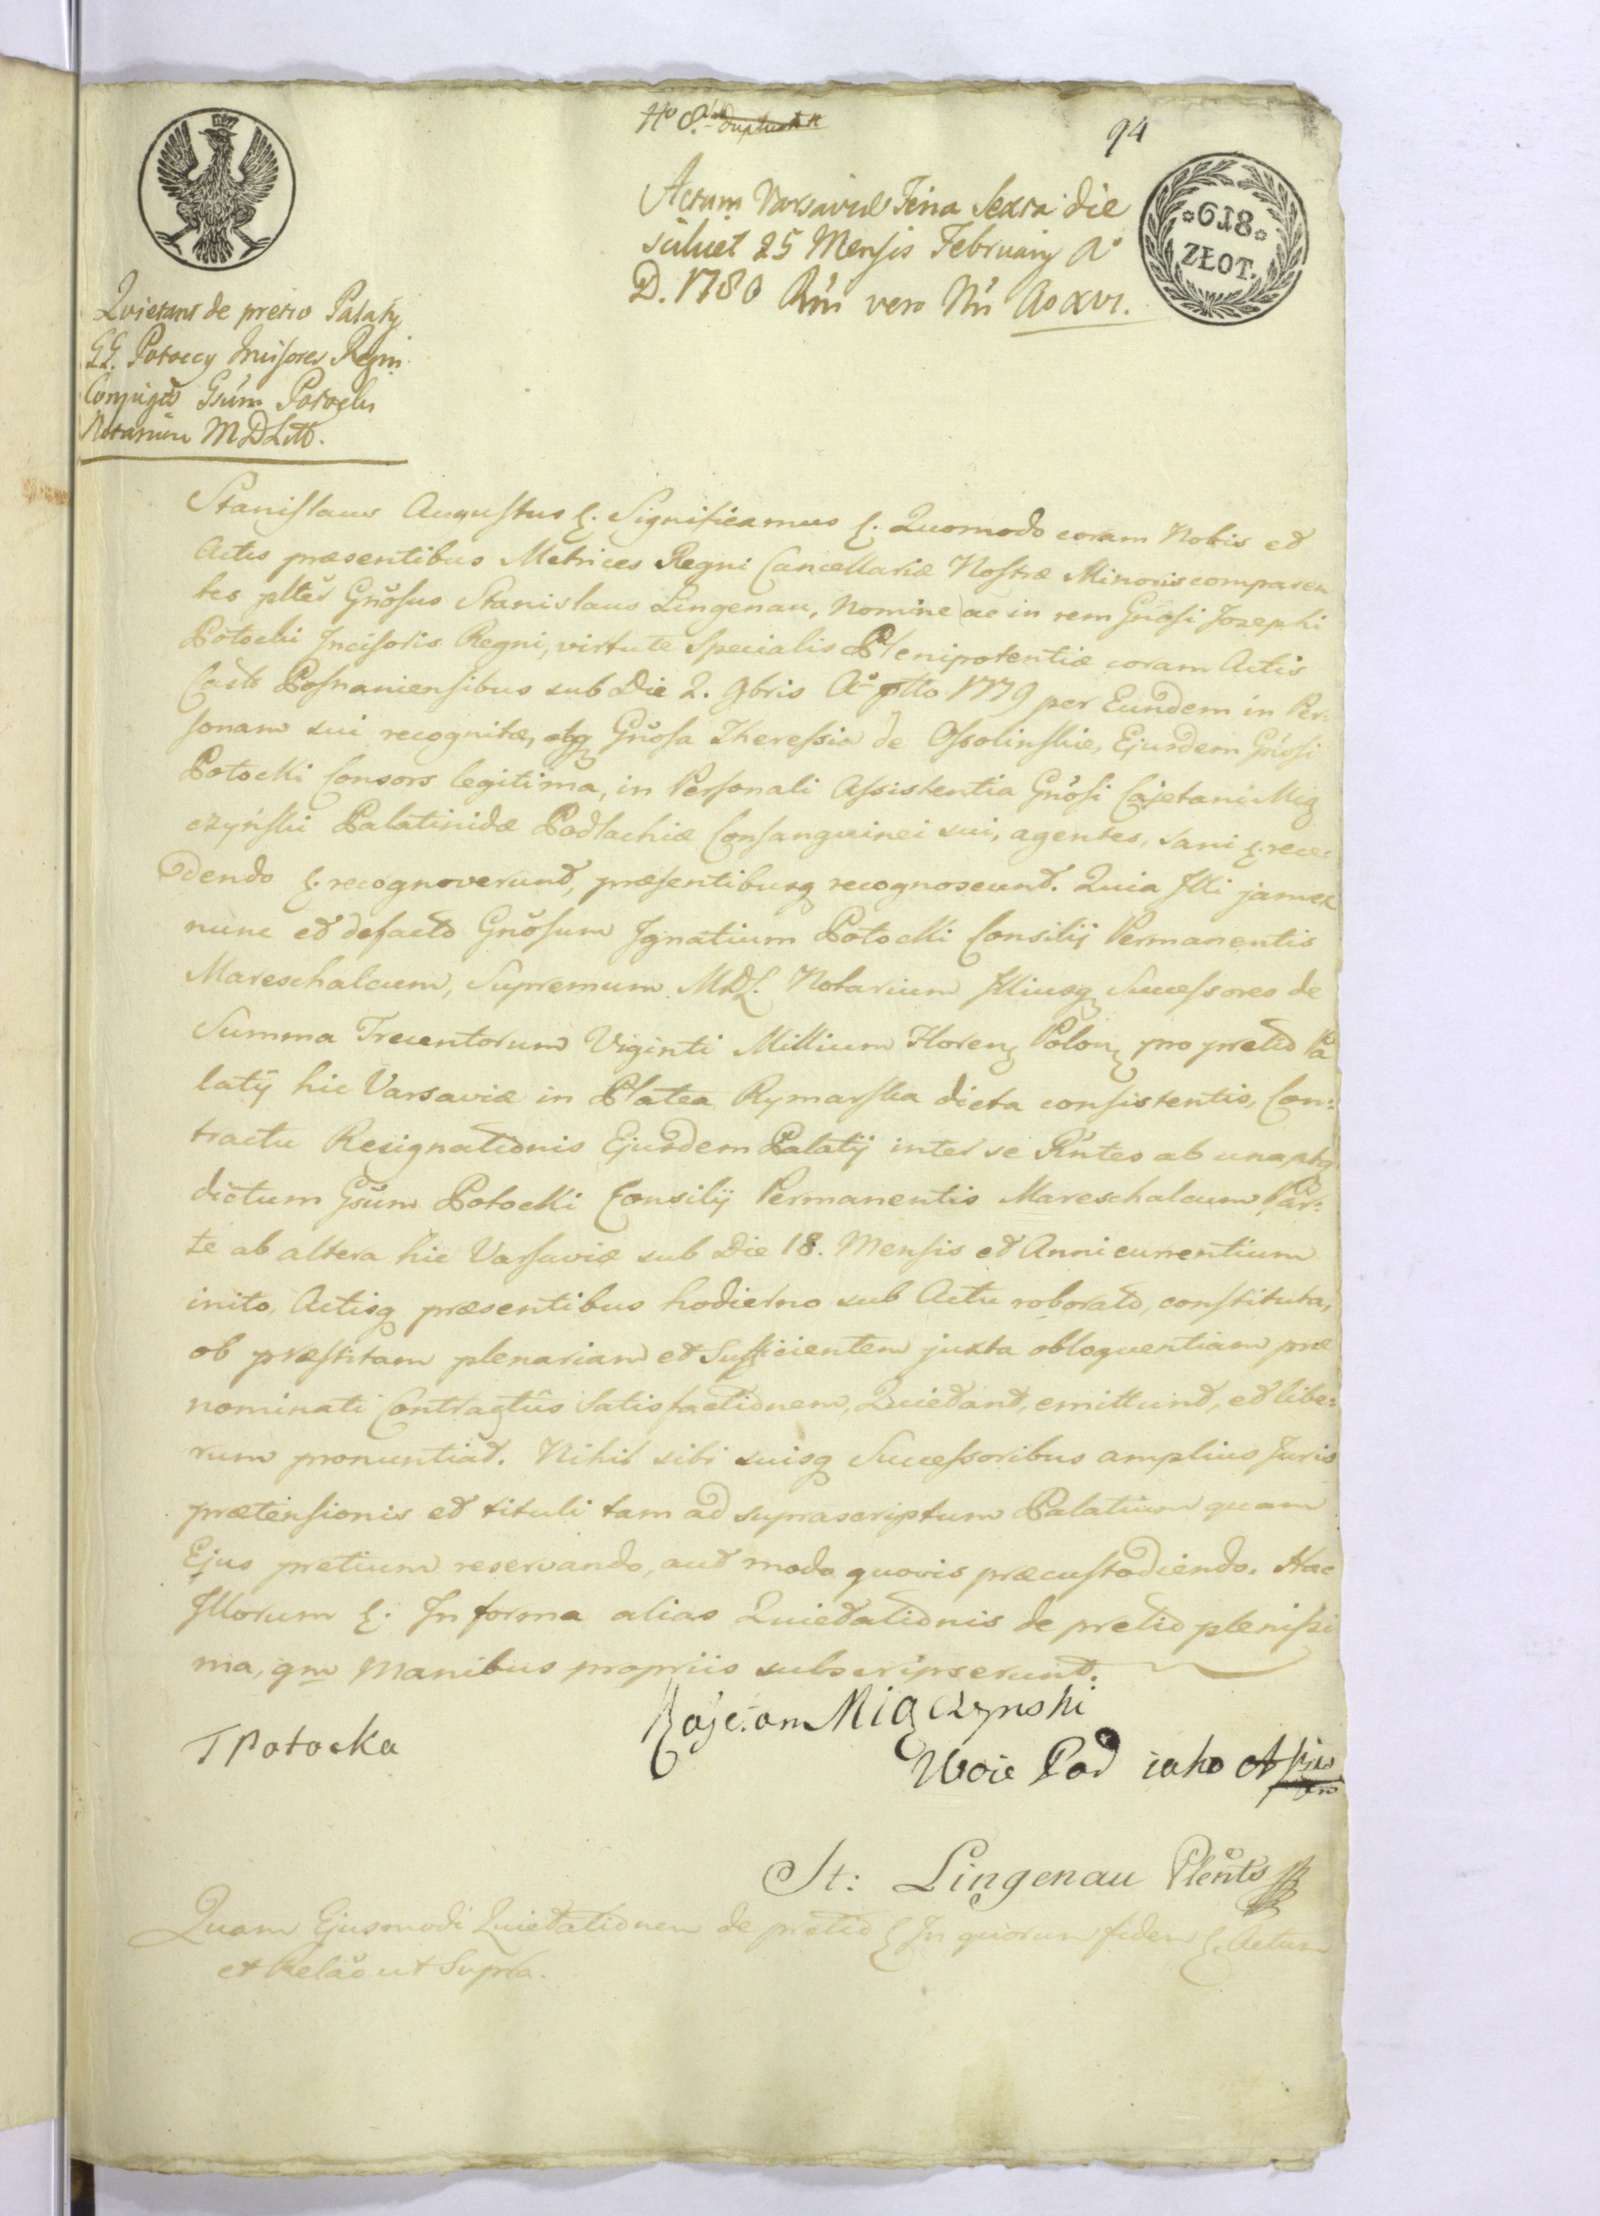 No 8.
94
Actum Varsaviæ Feria Sexta die
scilicet 25 Mensis February Ao
D. 1780 Rni vero Nri Ao XVI.
6 1 8
ZŁOT.
Quietans de pretio Palatij
GG. Potoccy Incisores Regni
Conjuges Gsum Potocki
Notarium MDLitt.
Stanislaus Augustus &. Significamus &. Quomodo coram Nobis et
Actis præsentibus Metrices Regni Cancellariæ Nostræ Minoris comparen
tes plter Gnosus Stanislaus Lingenau, Nomine ac in rem Gnosi Josephi
Potocki Incisoris Regni, virtute Specialis Plenipotentiæ coram Actis
Castr Posnaniensibus sub Die 2. 9bris Ao pllo 1779 per Eundem in Per-
sonam sui recognitæ, atq Gnosa Theressia de Ossolinskie, Ejusdem Gnosi
Potocki Consors legitima, in Personali Assistentia Gnosi Cajetani Mią
czyński Palatinidæ Podlachiæ Consanguinei sui, agentes, sani &. rece-
dendo &. recognoverunt, præsentibusq recognoscunt. Quia Illi jam ex
nunc et defacto Gnosum Ignatium Potocki Consilij Permanentis
Mareschalcum, Supremum MDL. Notarium Illiusq Successores de
Summa Trecentorum Viginti Millium Floren Polon pro pretio Pa
latij hic Varsaviæ in Platea Rymarska dicta consistentis, Con:
tractu Resignationis Ejusdem Palatij inter se Rntes ab una ptq
dictum Gsum Potocki Consilij Permanentis Mareschalcum Par:
te ab altera hic Varsaviæ sub Die 18. Mensis et Anni currentium
inito, Actisq præsentibus hodierno sub Actu roborato, constituta,
ob præstitam plenariam et Sufficientem juxta obloquentiam præ
nominati Contractûs Satisfactionem, Quietant, emittunt, et libe:
rum pronuntiat. Nihil sibi suisq Successoribus amplius Juris
prætensionis et tituli tam ad suprascriptum Palatium quam
Ejus pretium reservando, aut modo quovis præcustodiendo. Hac
Illorum &. In forma alias Quietationis de pretio plenissi
ma, qm Manibus propriis subscripserunt.
T Potocka
Kajetan Miączynski
Woie Pod iako
St: Lingenau Plents
Quam Ejusmodi Quietationem de pretio & In quorum fidem &. Actum
et Relão ut Supra.